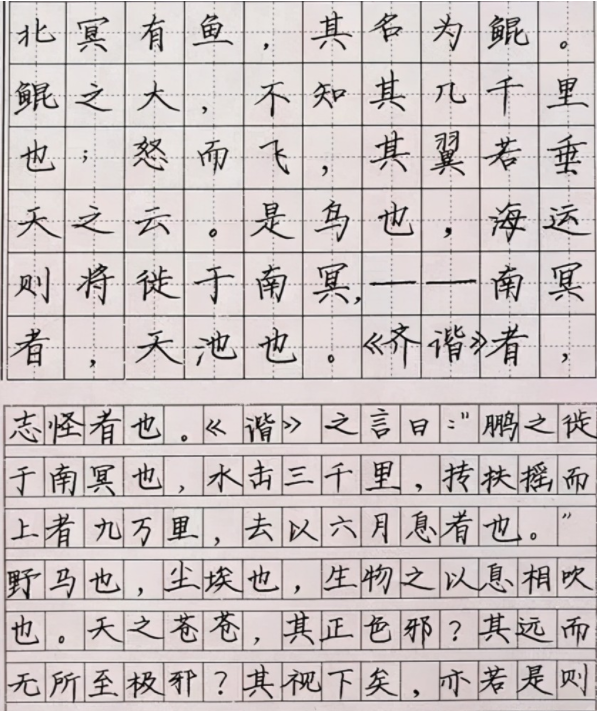 北冥有鱼，其名为鲲。
鲲之大，不知其几千里
也；怒而飞，其翼若垂
天之云。是鸟也，海运
则将徙于南冥，——南冥
者，天池也。《齐谐》者，
志怪者也。《谐》之言曰：“鹏之徙
于南冥也，水击三千里，抟扶摇而
上者九万里，去以六月息者也。”
野马也，尘埃也，生物之以息相吹
也。天之苍苍，其正色邪？其远而
无所至极邪？其视下矣，亦若是则